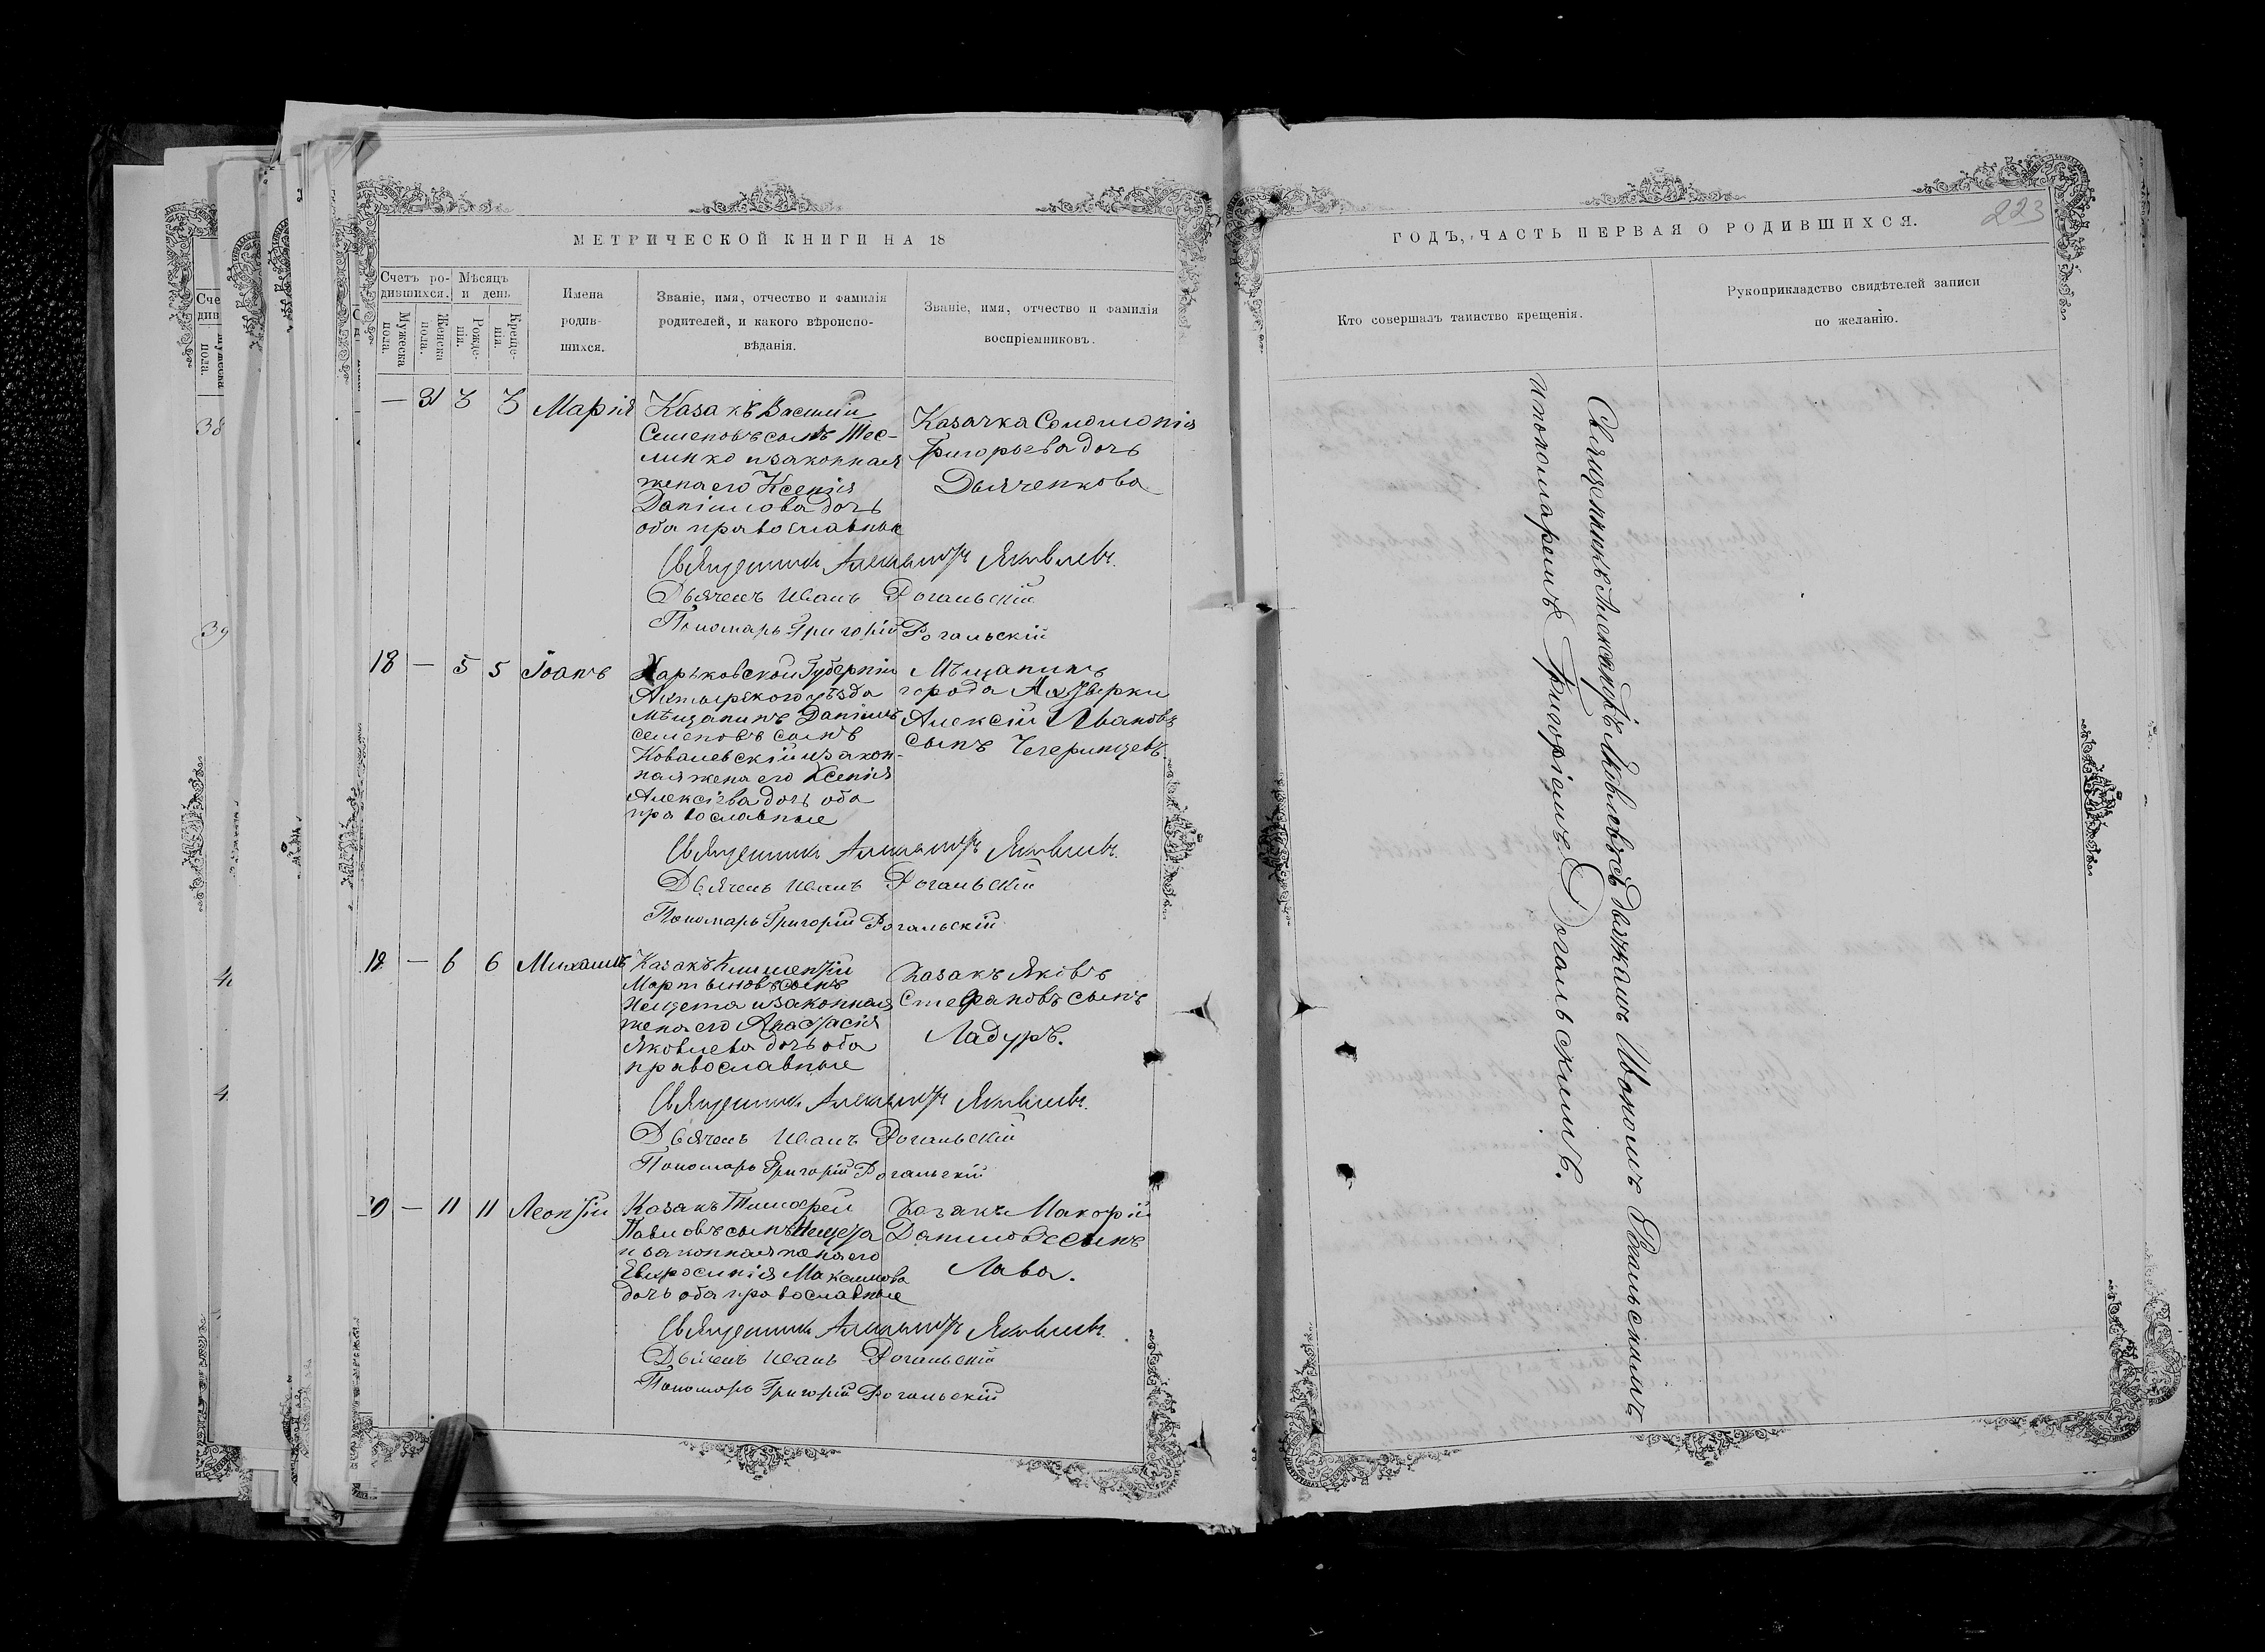 МЕТРИЧЕСКОЙ КНИГИ НА 18
Счетъ ро-
дившихся.
Мѣсяцъ
и день
Мужеска
пола.
Женска
пола.
Рожде-
нія.
Креще-
нія.
Имена
родив-
шихся.
Званіе, имя, отчество и фамилія
родителей, и какого вѣроиспо-
вѣданія.
Званіе, имя, отчество и фамилія
воспріемниковъ.
Марія
Казакъ Василій
Семеновъ сынъ Тес-
ленко и законная
жена его Ксенія
Даніилова дочь
оба православные
Казачка Соломонія
Григорьева дочь
Дьяченкова
Священникъ Александръ Яковлевъ.
Дьячекъ Иванъ Рогальскій
Пономарь Григорій Рогальскій
18 — 5 5 Іоанъ
Харьковской Губерніи
Ахтырскаго уѣзда
Мѣщанинъ Даніилъ
Семеновъ сынъ
Ковалевскій и закон-
ная жена его Ксенія
Алексіева дочь оба
православные
Мѣщанинъ
города
Алексій Ивановъ
сынъ Чегринцевъ.
Священникъ Александръ Яковлевъ.
Дьячекъ Иванъ Рогальскій
Пономарь Григорій Рогальскій
— 6 6 Михаилъ
Казакъ Климентій
Мартыновъ сынъ
Нещета и законная
жена его Анастасія
Яковлева дочь оба
православные
Казакъ Яковъ
Стефановъ сынъ
Ладуръ.
Священникъ Александръ Яковлевъ.
Дьячекъ Иванъ Рогальскій
Пономарь Григорій Рогальскій
— 11 11 Леонтій
Казакъ Тимофей
Павловъ сынъ Нещета
и законная жена его
Евфросинія Максимова
дочь оба православные
Казакъ Макарій
Даниловъ сынъ
Лава.
Священникъ Александръ Яковлевъ.
Дьячекъ Иванъ Рогальскій
Пономарь Григорій Рогальскій
ГОДЪ, ЧАСТЬ ПЕРВАЯ О РОДИВШИХСЯ.
223
Кто совершалъ таинство крещенія.
Рукоприкладство свидѣтелей записи
по желанію.
Священникъ Александръ Яковлевъ съ дьячкомъ Иваномъ Рогальскимъ
и пономаремъ Григоріемъ Рогальскимъ.
38
39